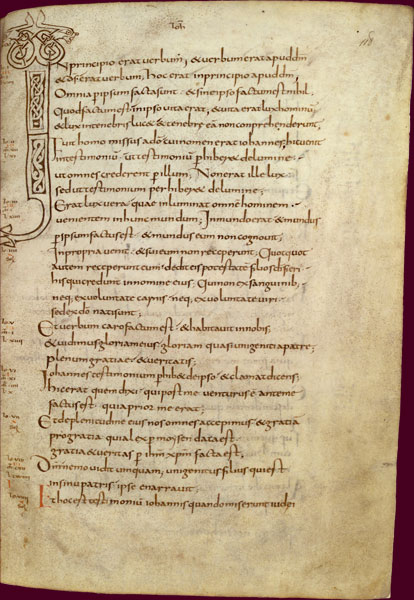 Ioh
118
IN principio erat verbum, & verbum erat apud dm
& ds erat verbum, hoc erat in principio apud dm,
Omnia p ipsum facta sunt & sine ipso factum est nihil,
Quod factum est in ipso vita erat, & vita erat lux hominū
& lux in tenebris luc& & tenebrę eā non comprehenderunt,
Fuit homo missus a dō cui nomen erat iohannes, hic venit
in testimoniū ut testimoniū phiber& de lumine
ut omnes crederent p illum, Non erat ille lux
sed ut testimonium perhiber& de lumine,
Erat lux vera quae inluminat omnem hominem
venientem in hunc mundum, In mundo erat & mundus
p ipsum factus est & mundus eum non cognovit,
In propria venit & sui eum non receperunt, Quotquot
autem receperunt eum dedit eis potestatē filios di fieri
his qui credunt in nomine eius, Qui non ex sanguinib;
neq; ex voluntate carnis neq; ex voluntate viri
sed ex dō nati sunt,
Et verbum caro factum est & habitavit in nobis,
& vidimus gloriam eius gloriam quasi unigeniti a patre,
plenum gratiae & veritatis,
Iohannes testimonium phib& de ipso & clamat dicens,
hic erat quem dixi qui post me venturus ē ante me
factus est quia prior me erat,
Et de plenitudine eius nos omnes accepimus & gratiā
pro gratia quia lex p moysen data est
gratia & veritas p ihm xpm facta est,
Dm nemo vidit umquam, unigenitus filius qui est
in sinu patris ipse enarravit,
Et hoc est testimoniū iohannis quando miserunt iudei